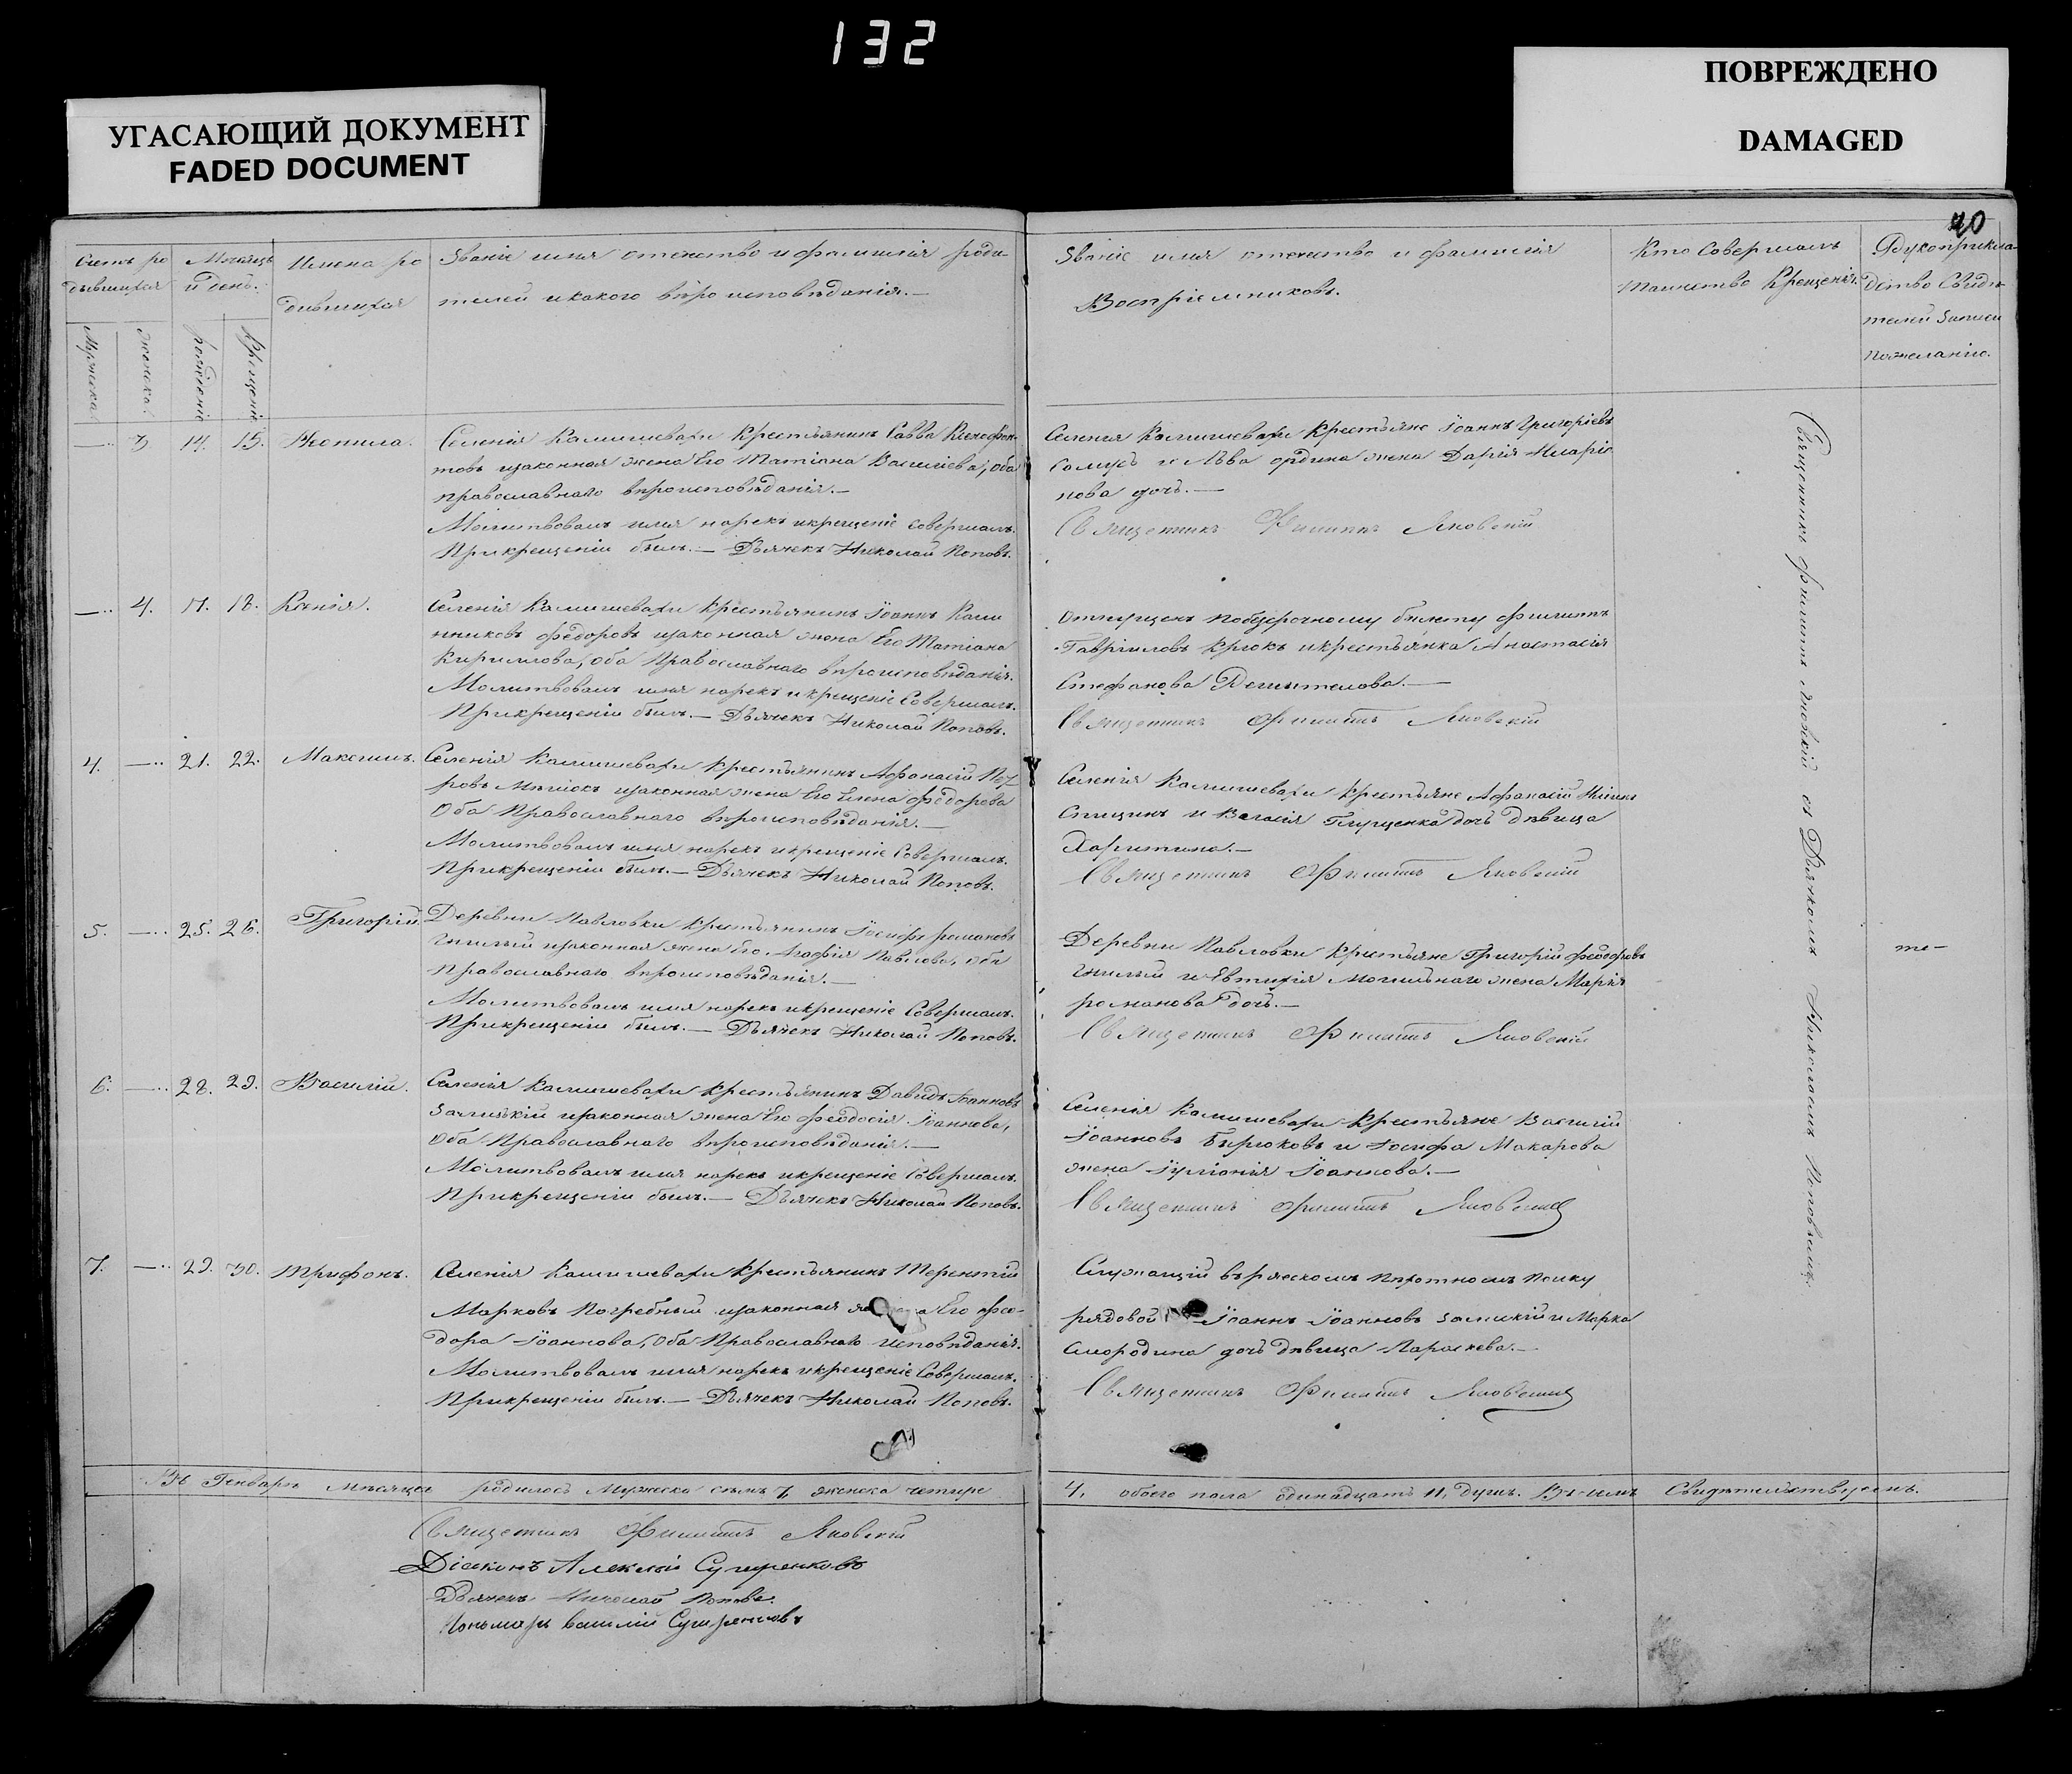 132
УГАСАЮЩИЙ ДОКУМЕНТ
FADED DOCUMENT
ПОВРЕЖДЕНО
DAMAGED
20
Счетъ ро
дившихся
Мужеска
женска
Мѣсяцъ
и день.
рожденіе
Крещеніе
Имена ро
дившихся
Званіе имя отечество и фамилія роди
телей и какого вѣроисповѣданія.—
Званіе имя отечество и фамилія
Воспріемниковъ.
Кто Совершалъ
Таинство Крещенія.
Рукоприкла
дство Свидѣ
телей записи
по желанію.
—.. 3 14. 15.
Селенія Камишевахи Крестьянинъ Савва Ксенофон
товъ изаконная жена Его Татіана Василіева, оба
православнаго вѣроисповѣданія.—
Молитвовалъ имя нарекъ икрещеніе совершалъ.
Прикрещеніи былъ.— Дьячекъ Николай Поповъ.
Селенія Камишевахи Крестьяне Іоаннъ Григоріевъ
жена Дарія Иларіо
нова дочь.—
Священникъ Филиппъ Яновскій
—.. 4. 17. 18. Ксенія.
Селенія Камишевахи Крестьянинъ Іоаннъ
Федоровъ изаконная жена Его Татіана
Кирилова, оба Православнаго вѣроисповѣданія.
Молитвовалъ имя нарекъ икрещеніе Совершалъ.
Прикрещеніи былъ.— Дьячекъ Николай Поповъ.
билету Филиппъ
Гавріиловъ Крюкъ икрестьянка Анастасія
Стефанова
Священникъ Филиппъ Яновскій
4. —.. 21. 22. Максимъ.
Селенія Камишевахи Крестьянинъ Афанасій
изаконная жена Его Елена Федорова
Оба Православнаго вѣроисповѣданія.—
Молитвовалъ имя нарекъ икрещеніе Совершалъ.
Прикрещеніи былъ.— Дьячекъ Николай Поповъ.
Селенія Камишевахи Крестьяне Афанасій
дочь дѣвица
Харитина.—
Священникъ Филиппъ Яновскій
5. —.. 25. 26. Григорій
Деревни Павловки Крестьянинъ Іосифъ Романовъ
Гнилый изаконная жена Его Агафія Павлова, оба
Православнаго вѣроисповѣданія.—
Молитвовалъ имя нарекъ икрещеніе Совершалъ.
Прикрещеніи былъ.— Дьячекъ Николай Поповъ.
Деревни Павловки Крестьяне Григорій Феодоровъ
Гнилый и Евтихія Могильнаго жена Марія
романова дочь.—
Священникъ Филиппъ Яновскій
те—
6. —.. 28. 29. Василій.
Селенія Камишевахи Крестьянинъ Давидъ Іоанновъ
изаконная жена Его Феодосія Іоаннова,
Оба Православнаго вѣроисповѣданія.—
Молитвовалъ имя нарекъ икрещеніе Совершалъ.
Прикрещеніи былъ.— Дьячекъ Николай Поповъ.
Селенія Камишевахи Крестьяне Василій
Іоанновъ Бирюковъ и Іосифа Макарова
жена Іуліанія Іоаннова.—
Священникъ Филиппъ Яновскій
7. —.. 29. 30. Трифонъ.
Селенія Камишевахи Крестьянинъ Терентій
Марковъ Погребный изаконная жена Его Фео-
дора Іоаннова, Оба Православнаго исповѣданія.
Молитвовалъ имя нарекъ икрещеніе Совершалъ.
Прикрещеніи былъ.— Дьячекъ Николай Поповъ.
Служащій полку
рядовой Іоаннъ Іоанновъ и Марка
Смородина дочь дѣвица Параскева.—
Священникъ Филиппъ Яновскій
Священникъ Филиппъ Яновскій съ Дьячкомъ Николаемъ Поповымъ.
Въ Генварѣ мѣсяцѣ родилось Мужеска семъ 7, женска четире 4, обоего пола одинадцать 11, душъ. Въ чемъ Свидѣтельствуемъ.
Священникъ Филиппъ Яновскій
Діаконъ Алексѣй
Дьячекъ Николай Поповъ.
Пономарь Василій